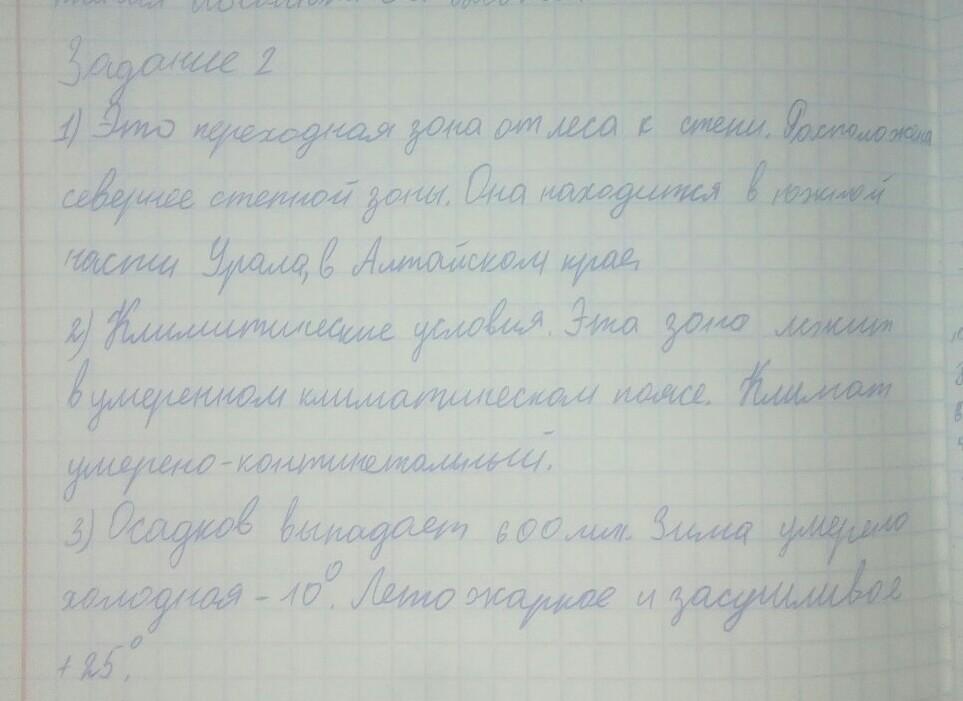 Задание 2
1) Это переходная зона от леса к степи. Расположена
севернее степной зоны. Она находится в южной
части Урала, в Алтайском крае.
2) Климитические условия. Эта зона лежит
в умеренном климатическом поясе. Климат
умерено-континетальный.
3) Осадков выпадает 600 мм. Зима умерено
холодная -10°. Лето жаркое и засушливое
+25°.